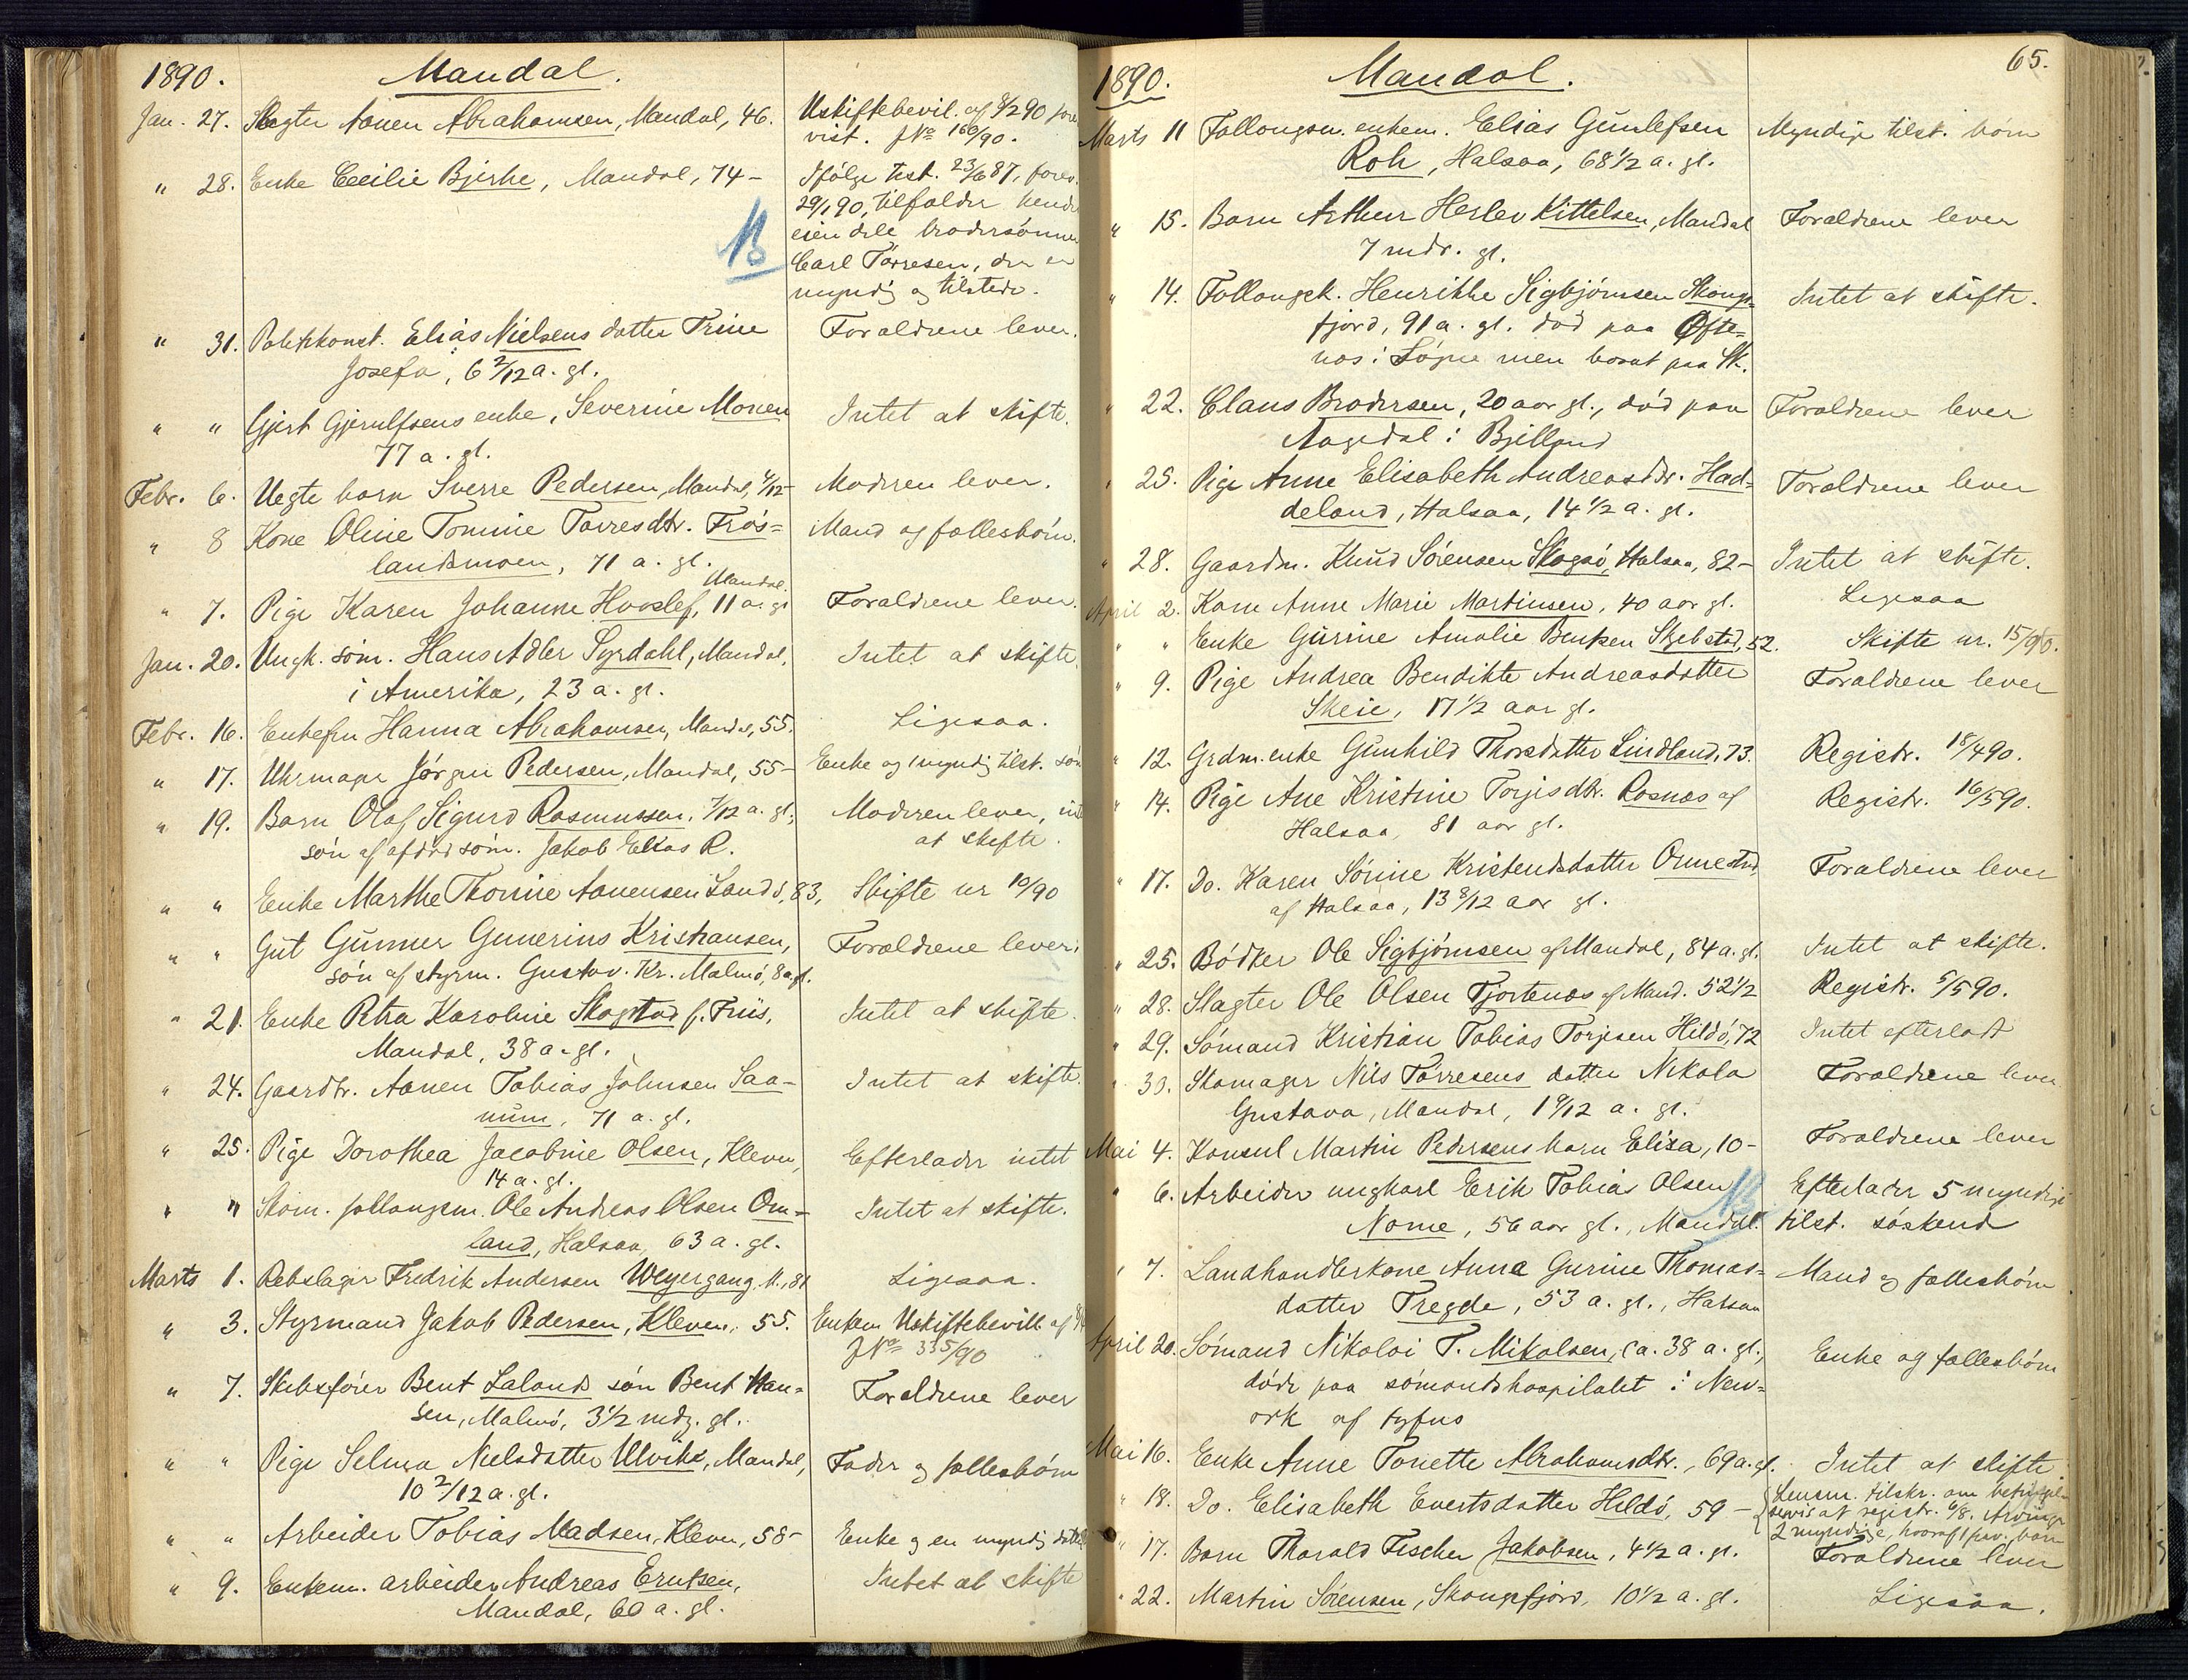 1890. Mandal.
Jan. 27. Slagter Aanen Abrahamsen, Mandal, 46. Uskiftebevil. af 8/2 90 fore
vist. JNo 160/90.
" 28. Enke Cecilie Bjerke, Mandal, 74 - Ifølge test. 23/6 87, forev.
29/1 90, tilfalder hendes
eiendele brodersønnen
Carl Tørresen, der er
myndig og tilstede.
" 31. Politikonst. Elias Nielsens datter Trine Forældrene lever.
Josefa, 6 2/12 a. gl.
" " Gjert Gjerulfsens enke, Severine Monen Intet at skifte.
77 a. gl.
Febr. 6. Uegte barn Sverre Pedersen, Mandal, Moderen lever.
" 8 Kone Oline Tomine Torresdtr. Frøs= Mand og fællesbørn.
landsmoen, 71 a. gl.
" 7. Pige Karen Johanne Hooslef, 11 a. gl Mandal. Forældrene lever.
Jan. 20. Ungk. søm. Hans Adler Syrdahl, Mandal, Intet at skifte.
i Amerika, 23 a. gl.
Febr. 16. Enkefru Hanna Abrahamsen, Mandal, 55. Ligesaa.
" 17. Uhrmager Jørgen Pedersen, Mandal, 55 - Enke og 1 myndig tilst. søn
" 19. Barn Olaf Sigurd Rasmussen, 7/12 a. gl., Moderen lever, int
søn af afdød søm. Jakob Elias R. at skifte.
" " Enke Marthe Thorine Aanensen Lands, 83, Skifte nr 10/90
" " Gut Gunner Gunerius Kristiansen, Forældrene lever.
søn af styrm. Gustav Kr. Malmø, 8 a. gl.
" 21. Enke Petra Karoline Skogstad f. Friis, Intet at skifte.
Mandal, 38 a. gl.
" 24. Gaardbr. Aanen Tobias Johnsen Saa- Intet at skifte.
num, 71 a. gl.
" 25. Pige Dorothea Jacobine Olsen, Kleven, Efterlader intet
14 a. gl.
" " Skom. follaugsm. Ole Andreas Olsen Om= Intet at skifte.
land, Halsaa, 63 a. gl.
Marts 1. Rebslager Fredrik Andersen Weyergang. M., 81 Ligesaa.
" 3. Styrmand Jakob Pedersen, Kleven, 55. Enken Uskiftebevill. af
JNo 335/90
" 7. Skibsfører Bent Lalands søn Bent Han= Forældrene lever
sen, Malmø, 3 1/2 mdr. gl.
" " Pige Selma Nielsdatter Ulvike, Mandal, Fader og fællesbørn
10 2/12 a. gl.
" " Arbeider Tobias Madsen, Kleven, 58 - Enke og en myndig datter
" 9. Enkem. arbeider Andreas Eriksen, Intet at skifte
Mandal, 60 a. gl.
65.
1890. Mandal.
Marts 11 Follaugsm. enkem. Elias Gunlefsen Myndige tilst. børn
Roh, Halsaa, 68 1/2 a. gl.
" 15. Barn Arthur Herlev Kittelsen, Mandal Forældrene lever
7 mdr. gl.
" 14. Follaugsk. Henrikke Sigbjørnsen Skongs= Intet at skifte.
fjord, 91 a. gl. død paa Øfte=
nes i Søgne men bosat paa Sk.
" 22. Claus Brodersen, 20 aar gl., død paa Forældrene lever
Aagedal i Bjelland
" 25. Pige Anne Elisabeth Andreasdtr. Had= Forældrene lever
deland, Halsaa, 14 1/2 a. gl.
" 28. Gaardm. Knud Sørensen Skogsø, Halsaa, 82 - Intet at skifte.
April 2. Kone Anne Marie Martinsen, 40 aar gl. Ligesaa
" " Enke Gurine Amalie Bentsen Skjebstad, 52. Skifte nr. 15/90.
" 9. Pige Andrea Bendikte Andreasdatter Forældrene lever
Skeie, 17 1/2 aar gl.
" 12. Grdm. enke Gunhild Thorsdatter Lindland, 73. Registr. 18/4 90.
" 14. Pige Ane Kristine Torjesdtr. Rosnæs af Registr. 16/5 90.
Halsaa, 81 aar gl.
" 17. Do. Karen Sørine Kristensdatter Omestad Forældrene lever
af Halsaa, 13 8/12 aar gl.
" 25. Bødker Ole Sigbjørnsen af Mandal, 84 a. gl. Intet at skifte.
" 28. Slagter Ole Olsen Tjortenæs af Mand. 52 1/2 Registr. 5/5 90.
" 29. Sømand Kristian Tobias Torjesen Hildø, 72 Intet efterladt
" 30. Skomager Nils Tørresens datter Nikola Forældrene lever
Gustava, Mandal, 1 9/12 a. gl.
Mai 4. Konsul Martin Pedersens barn Elisa, 10 - Forældrene lever
" 6. Arbeider ungkarl Erik Tobias Olsen Efterlader 5 myndige
Nome, 56 aar gl., Mandal. tilst. søskend
" 7. Landhandlerkone Anna Gurine Thomas= Mand og fællesbørn
datter Tregde, 53 a. gl., Halsaa
April 20. Sømand Nikolai T. Mikalsen, ca. 38 a. gl., Enke og fællesbørn
døde paa sømandshospitalet i New=
ork af tyfus
Mai 16. Enke Anne Tonette Abrahamsdtr., 69 a. gl. Intet at skifte
" 18. Do. Elisabeth Evertsdatter Hildø, 59 - Lensm. tilskr. om
at registr. 6/8. Arvinger
2 myndige, hvoraf 1
" 17. Barn Tharald Fischer Jakobsen, 4 1/2 a. gl. Forældrene lever
" 22. Martin Sørensen, Skongsfjord, 10 1/2 a. gl. Ligesaa.